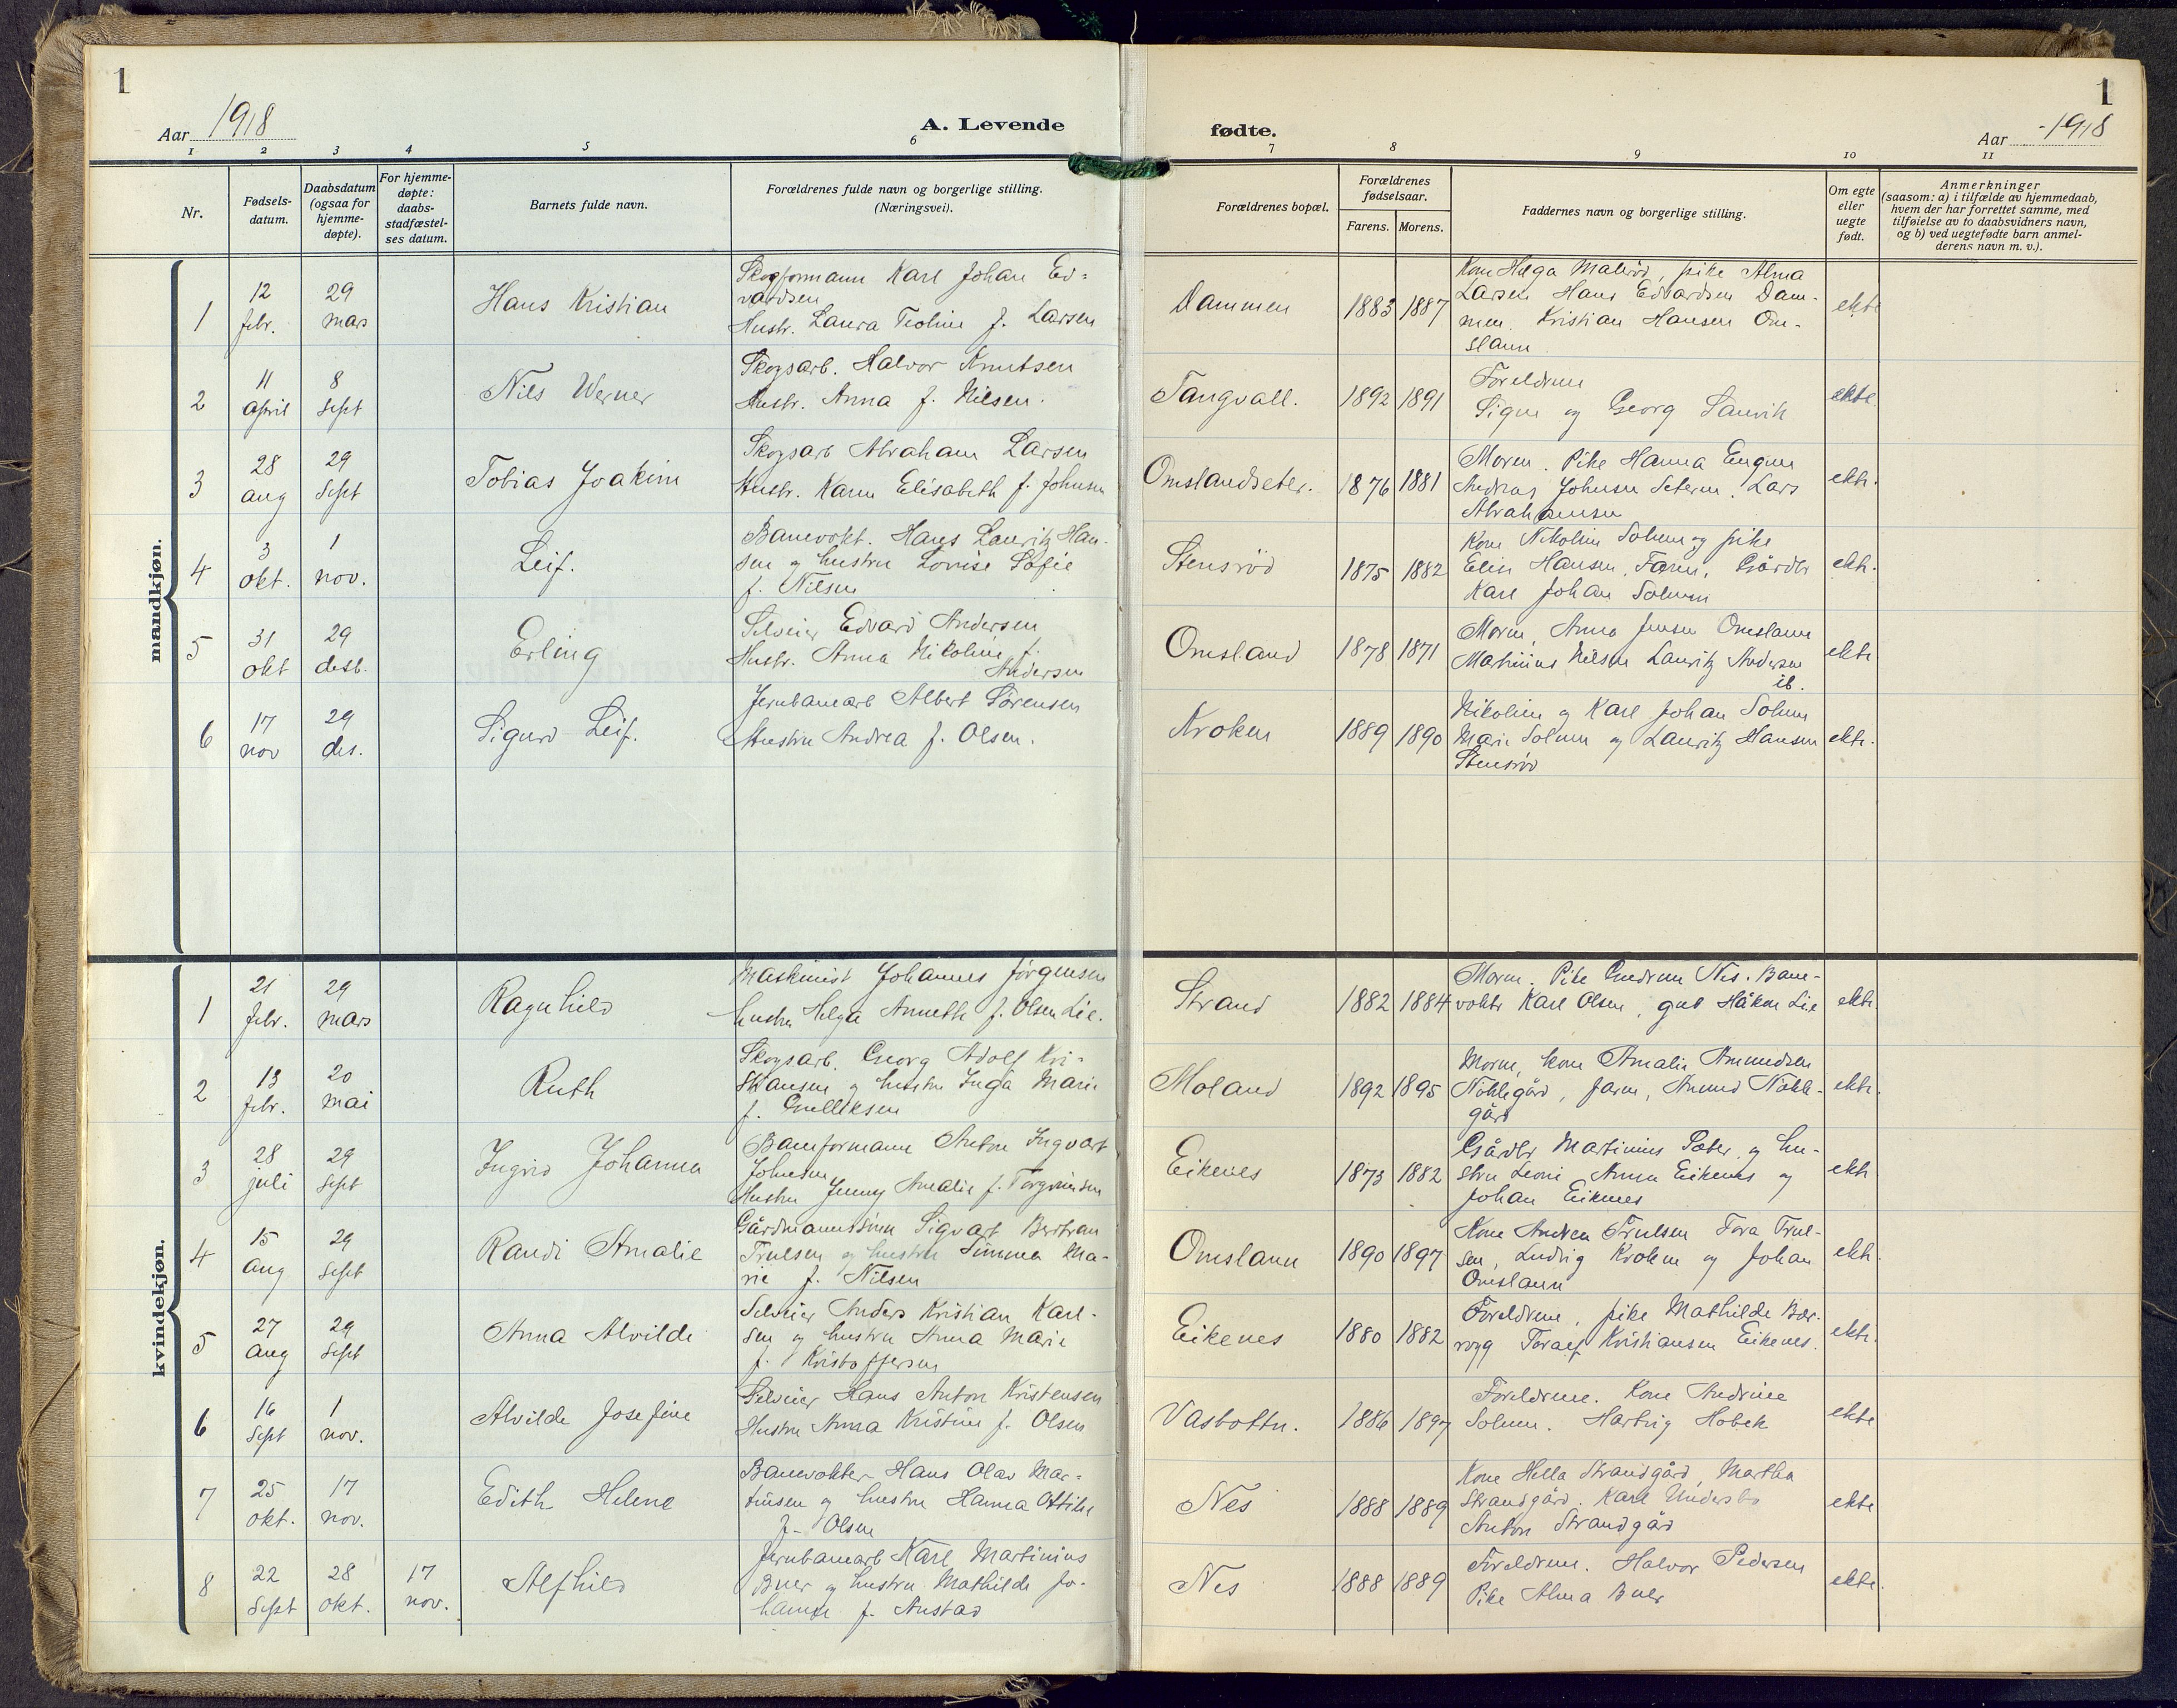 1
Aar 1918
A. Levende
1 2 3 4 5 6
Nr.
Fødsels-
datum.
Daabsdatum
(ogsaa for
hjemme-
døpte).
For hjemme-
døpte:
daabs-
stadfæstel-
ses datum.
Barnets fulde navn.
Forældrenes fulde navn og borgerlige stilling.
(Næringsvei).
fødte.
1
Aar 1918
7 8 9 10 11
Forældrenes bopæl.
Forældrenes
fødselsaar.
Farens. Morens.
Faddernes navn og borgerlige stilling.
Om egte
eller
uegte
født.
Anmerkninger
(saasom: a) i tilfælde av hjemmedaab,
hvem der har forrettet samme, med
tilføielse av to daabsvidners navn,
og b) ved uegtefødte barn anmel-
derens navn m. v.).
mandkjøn.
1
12
febr.
29
mars
Hans Kristian
Skogformann Karl Johan Ed=
vardsen
Hustr. Laura Teoline f. Larsen
Dammen
1883 1887
Kone Helga , pike Alma
Larsen Hans Edvardsen Dam-
men. Kristian Hansen Om-
slann
ekte
2
11
april
8
sept
Nils Werner
Skogsarb. Halvor Knutsen
Hustr. Anna f. Nilsen.
Tangvall.
1892 1891
Foreldrene
Signe og Georg
ekte
3
28
aug
29
sept
Tobias Joakim
Skogsarb Abraham Larsen
Hustr. Karen Elisabeth f. Johnsen
Omslandseter.
1876 1881
Moren. Pike Hanna
Andreas Johnsen Seteren. Lars
Abrahamsen
ekte.
4
3
okt.
1
nov.
Leif.
Banevokt. Hans Lauritz Han-
sen og hustru Lovise Sofie
f. Nilsen
Stensrød
1875 1882
Kone Nikoline Solum og pike
Elin Hansen, Faren, Gårdbr
Karl Johan Solum
ekte.
5
31
okt
29
desb.
Erling
Selveier Edvard Andersen
Hustr. Anna Nikoline f.
Andersen
Omsland
1878 1871
Moren, Anna Jensen Omslann
Martinius Nilsen Lauritz Andersen
ib.
ekte
6
17
nov
29
des.
Sigurd Leif.
Jernbanearb Albert Sørensen
Hustru Andrea f. Olsen.
Kroken
1889 1890
Nikoline og Karl Johan Solum
Marie Solum og Lauritz Hansen
Stensrød
ekte.
kvindekjøn.
1
21
febr.
29
mars
Ragnhild
Maskinist Johannes Jørgensen
hustru Helga Annette f. Olsen Lie.
Strand
1882 1884
Moren. Pike Gudrun Nes. Bane-
vokter Karl Olsen, gut Håkon Lie
ekte.
2
13
febr.
20
mai
Ruth
Skogsarb. Georg Adolf Kri-
stiansen og hustru Inga Marie
f. Gulliksen
Moland
1892 1895
Moren, kone Amalie Amundsen
Nøklegård, faren, Amund Nøkle-
gård
ekte.
3
28
juli
29
sept
Ingrid Johanna
Baneformann Anton Ingvart
Johnsen
Hustru Jenny Amalie f. Torgrimsen
Eikenes
1873 1882
Gårdbr Martinius Sæter og hu-
stru Leoni Anna Eikenes og
Johan Eikenes
ekte
4
15
aug
29
sept
Randi Amalie
Gårdmannssønn Sigvart Bertran
Trulsen og hustru Simma Ma-
rie f. Nilsen
Omslann
1890 1897
Kone Andrea Trulsen Tora Trul-
sen, Ludvig Kroken og Johan
Omslann
ekte.
5
27
aug
29
sept
Anna Alvilde
Selveier Anders Kristian Karl-
sen og hustru Anna Marie
f. Kristoffersen
Eikenes
1880 1882
Foreldrene, pike Mathilde Bær-
rygg Toralf Kristiansen Eikenes.
ekte.
6
16
sept
1
nov.
Alvilde Josefine
Selveier Hans Anton Kristensen
Hustru Anna Kristine f. Olsen
Vasbottn.
1886 1897
Foreldrene. Kone Andrine
Solum. Hartvig Hobek
ekte
7
25
okt.
17
nov.
Edith Helene
Banevokter Hans Olav Mar-
tinsen og hustru Hanna Ottilie
f. Olsen
Nes
1888 1889
Kone Hella Strandgård, Martha
Strandgård. Karl Undersbo
Anton Strandgård
ekte
8
22
sept
28
okt.
17
nov.
Alfhild
Jernbanearb Karl Martinius
Buer og hustru Mathilde Jo-
hanne f. Austad
Nes
1888 1889
Foreldrene. Halvor Pedersen
Pike Alma Buer
ekte.